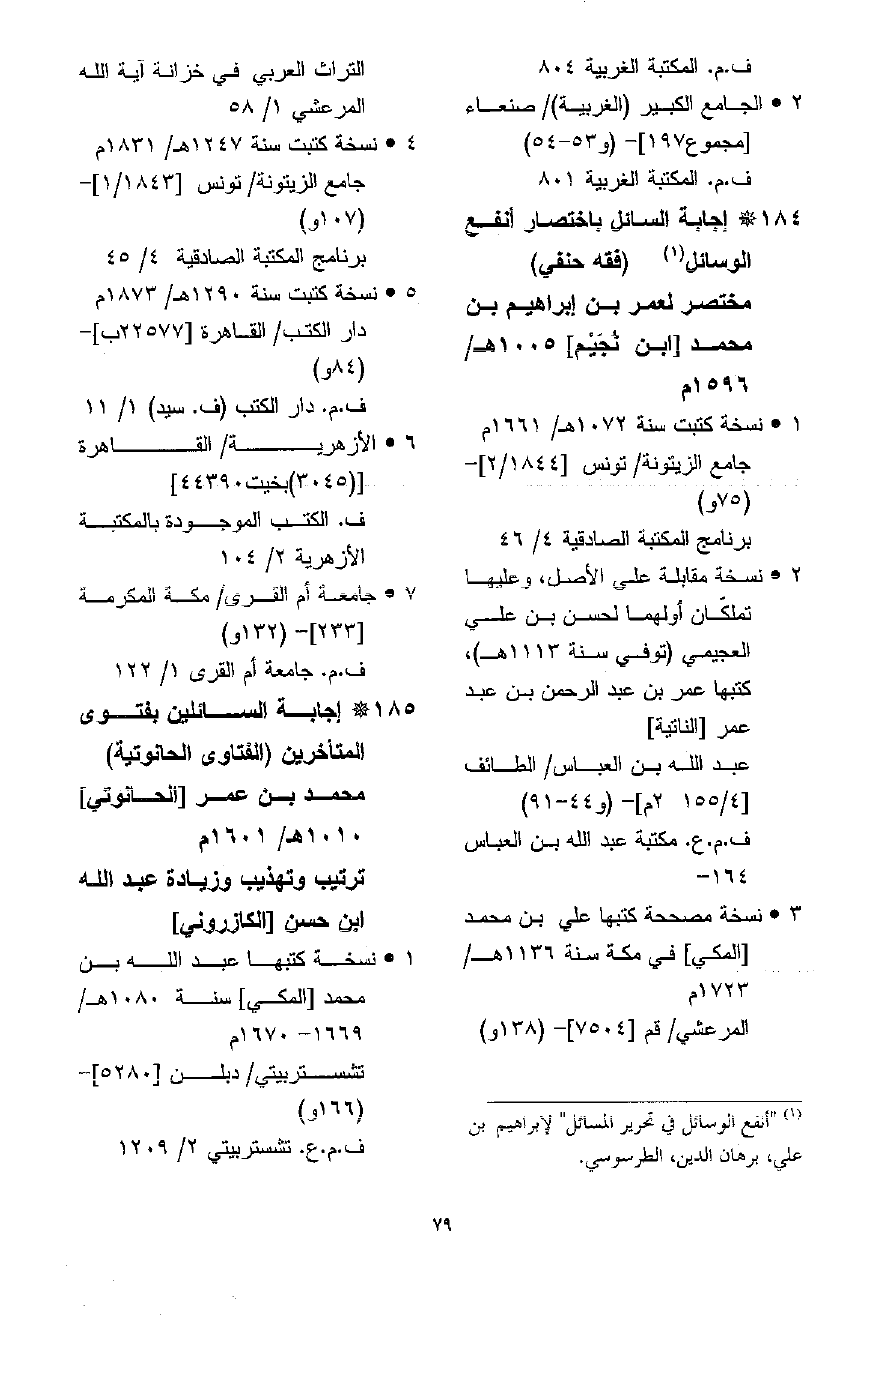 ف.م. المكتبة الغربية ٨٠٤
٢ • الجامع الكبير (الغربية)/ صنعاء
[مجموع١٩٧]- (و٥٣-٥٤)
ف.م. المكتبة الغربية ٨٠١
١٨٤* إجابة السائل باختصار أنفع
الوسائل(١) (فقه حنفي)
مختصر لعمر بن إبراهيم بن
محمد [ابن نُجَيْم] ١٠٠٥هـ/
١٥٩٦م
١ • نسخة كتبت سنة ١٠٧٢هـ/ ١٦٦١م
جامع الزيتونة/ تونس [٢/١٨٤٤]-
(٧٥و)
برنامج المكتبة الصادقية ٤/ ٤٦
٢ • نسخة مقابلة على الأصل، وعليها
تملّكان أولهما لحسن بن علي
العجيمي (توفي سنة ١١١٣هـ)،
كتبها عمر بن عبد الرحمن بن عبد
عمر [الناتية]
عبد الله بن العباس/ الطائف
[١٥٥/٤ ٢م]- (و٤٤-٩١)
ف.م.ع. مكتبة عبد الله بن العباس
١٦٤-
٣ • نسخة مصححة كتبها علي بن محمد
[المكي] في مكة سنة ١١٣٦هـ/
١٧٢٣م
المرعشي/ قم [٧٥٠٤]- (١٣٨و)
(١) "أنفع الوسائل في تحرير المسائل" لإبراهيم بن
علي، برهان الدين، الطرسوسي.
التراث العربي في خزانة آية الله
المرعشي ١/ ٥٨
٤ • نسخة كتبت سنة ١٢٤٧هـ/ ١٨٣١م
جامع الزيتونة/ تونس [١/١٨٤٣]-
(١٠٧و)
برنامج المكتبة الصادقية ٤/ ٤٥
٥ • نسخة كتبت سنة ١٢٩٠هـ/ ١٨٧٣م
دار الكتب/ القاهرة [٢٢٥٧٧ب]-
(٨٤و)
ف.م. دار الكتب (ف. سيد) ١/ ١١
٦ • الأزهرية/ القاهرة
[(٣٠٤٥)بخيت٤٤٣٩٠]
ف. الكتب الموجودة بالمكتبة
الأزهرية ٢/ ١٠٤
٧ • جامعة أم القرى/ مكة المكرمة
[٢٣٣]- (١٣٢و)
ف.م. جامعة أم القرى ١/ ١٢٢
١٨٥* إجابة السائلين بفتوى
المتأخرين (الفتاوى الحانوتية)
محمد بن عمر [الحانوتي]
١٠١٠هـ/ ١٦٠١م
ترتيب وتهذيب وزيادة عبد الله
ابن حسن [الكازروني]
١ • نسخة كتبها عبد الله بن
محمد [المكي] سنة ١٠٨٠هـ/
١٦٦٩- ١٦٧٠م
تشستربيتي/ دبلن [٥٢٨٠]-
(١٦٦و)
ف.م.ع. تشستربيتي ٢/ ١٢٠٩
٧٩